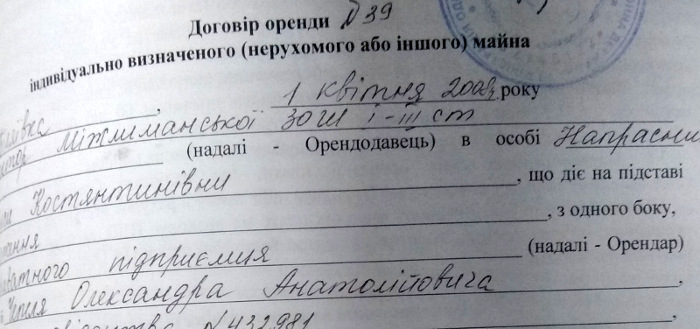 Договір оренди №39
індивідуально визначеного (нерухомого або іншого) майна
1 квітня року
Міжлиманської ЗОШ І-ІІІ ст
(надалі - Орендодавець) в особі Напрасни
Костянтинівни , що діє на підставі
, з одного боку,
підприємця (надалі - Орендар)
Олександра Анатолійовича ,
N432981 ,